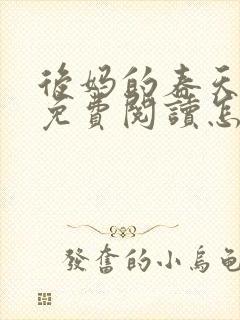 後妈的春天
免費閱讀怎
發奮的小烏龜